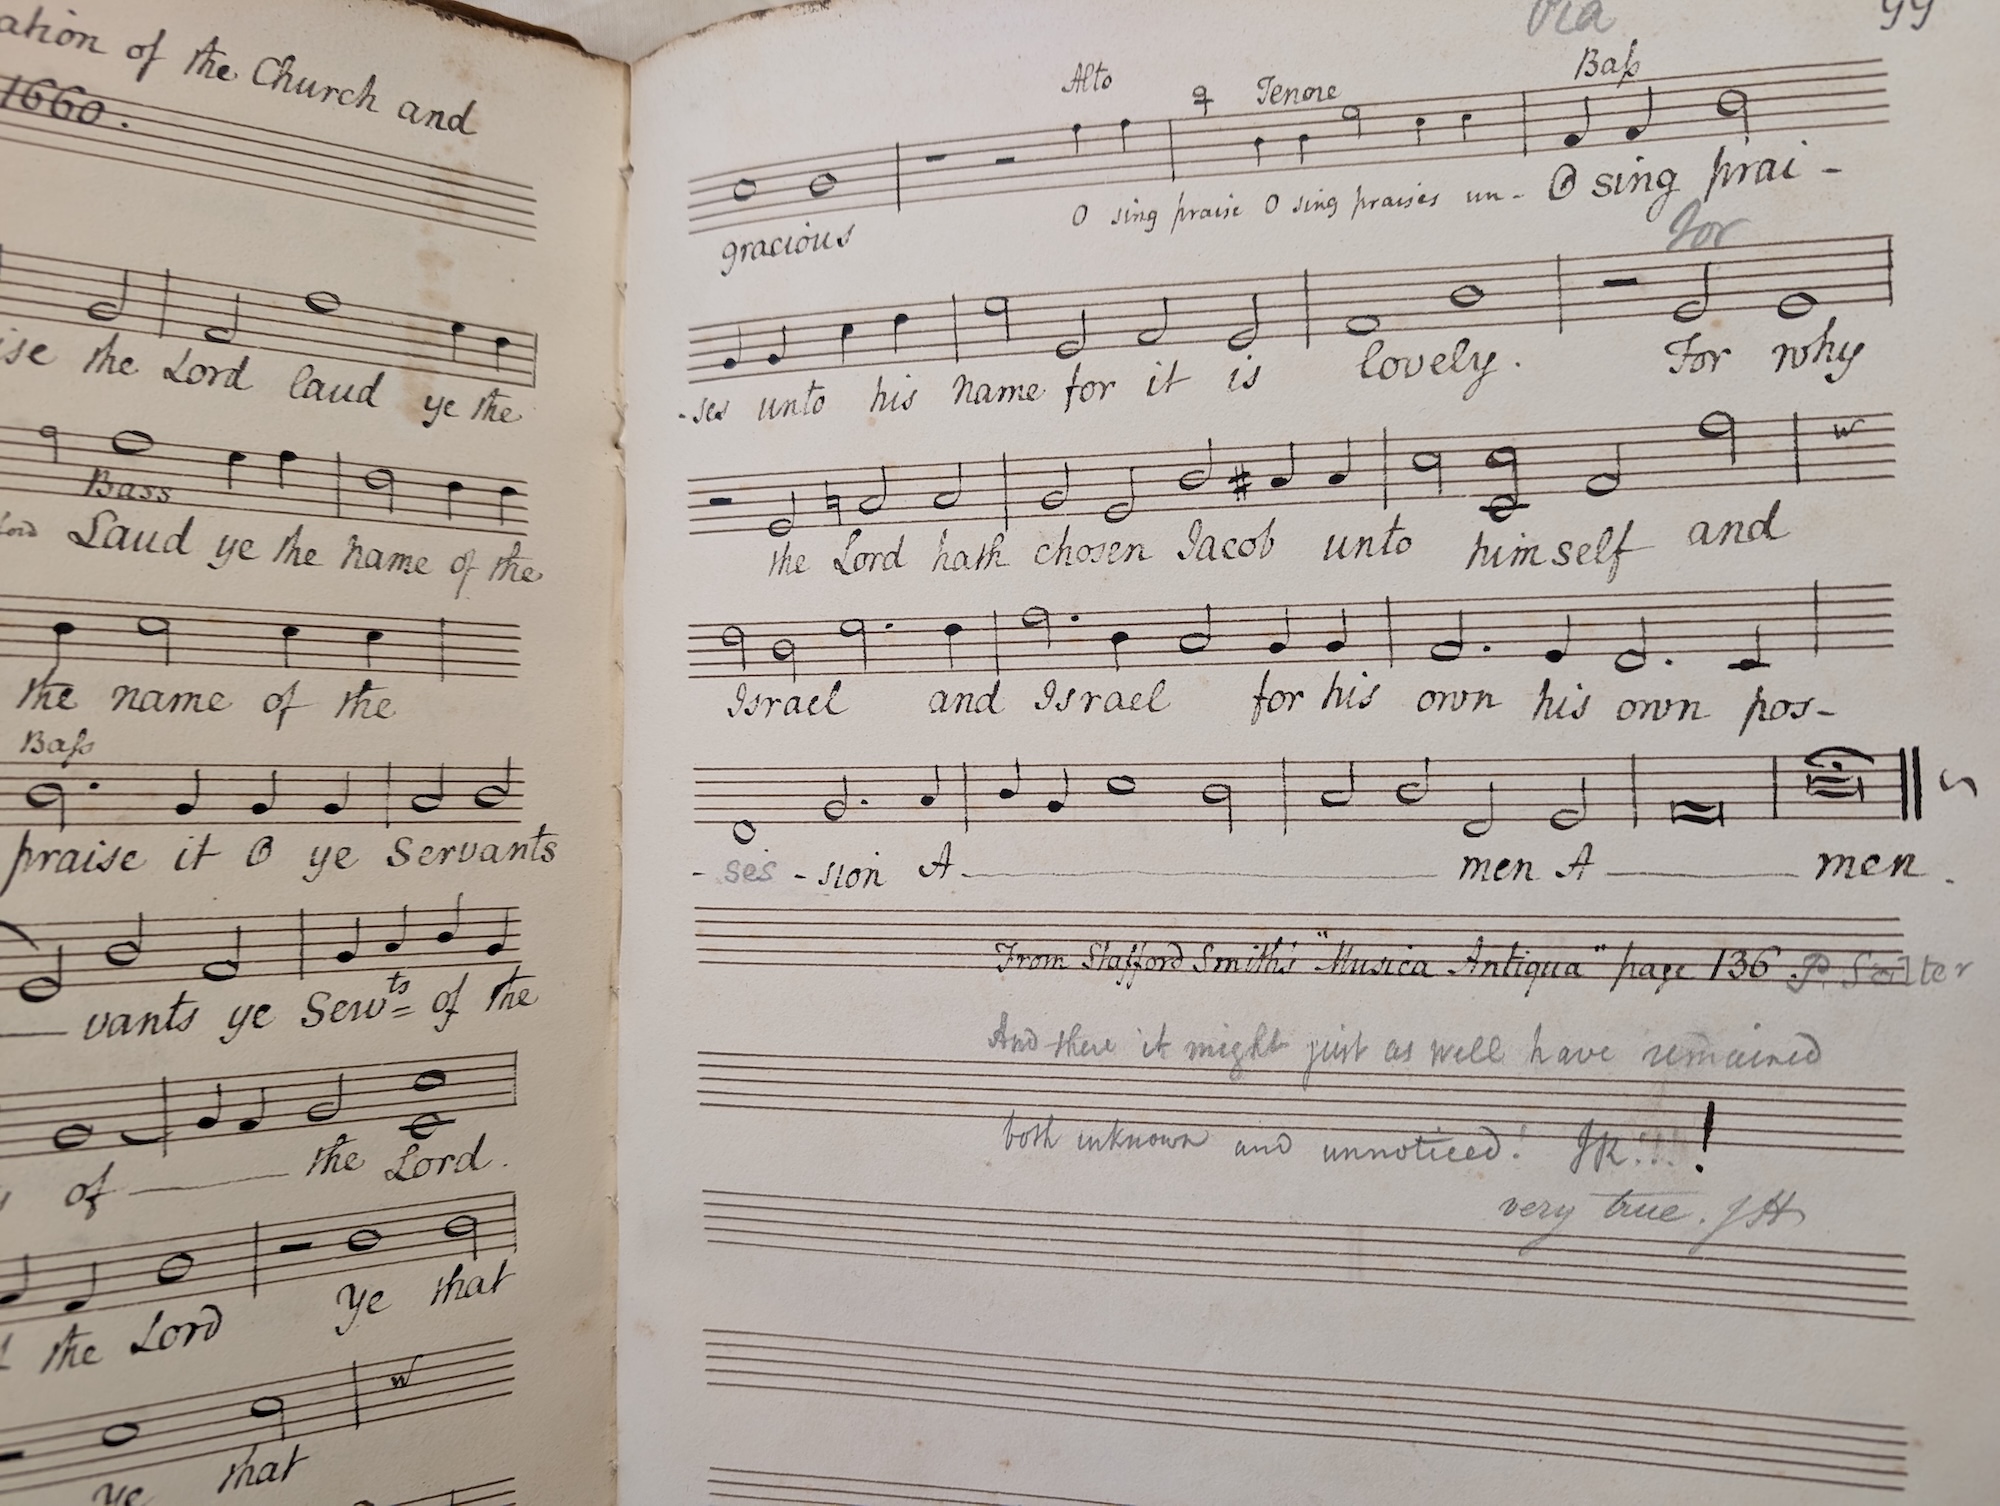 ation of the Church and
1660.
ise the Lord laud ye the
Bass
Lord Laud ye the name of the
the name of the
Baſs
praise it O ye Servants
vants ye Servts of the
of the Lord.
the Lord Ye that
ye that
99
Alto Tenore Baſs
gracious O sing praise O sing praises un- O sing prai-
for
-ses unto his name for it is lovely. For why
the Lord hath chosen Jacob unto himself and
Israel and Israel for his own his own pos-
-ses-sion A men A men.
From Stafford Smith's "Musica Antiqua" page 136. P. Salter
And there it might just as well have remained
both unknown and unnoticed! JR!!!!
very true. JH